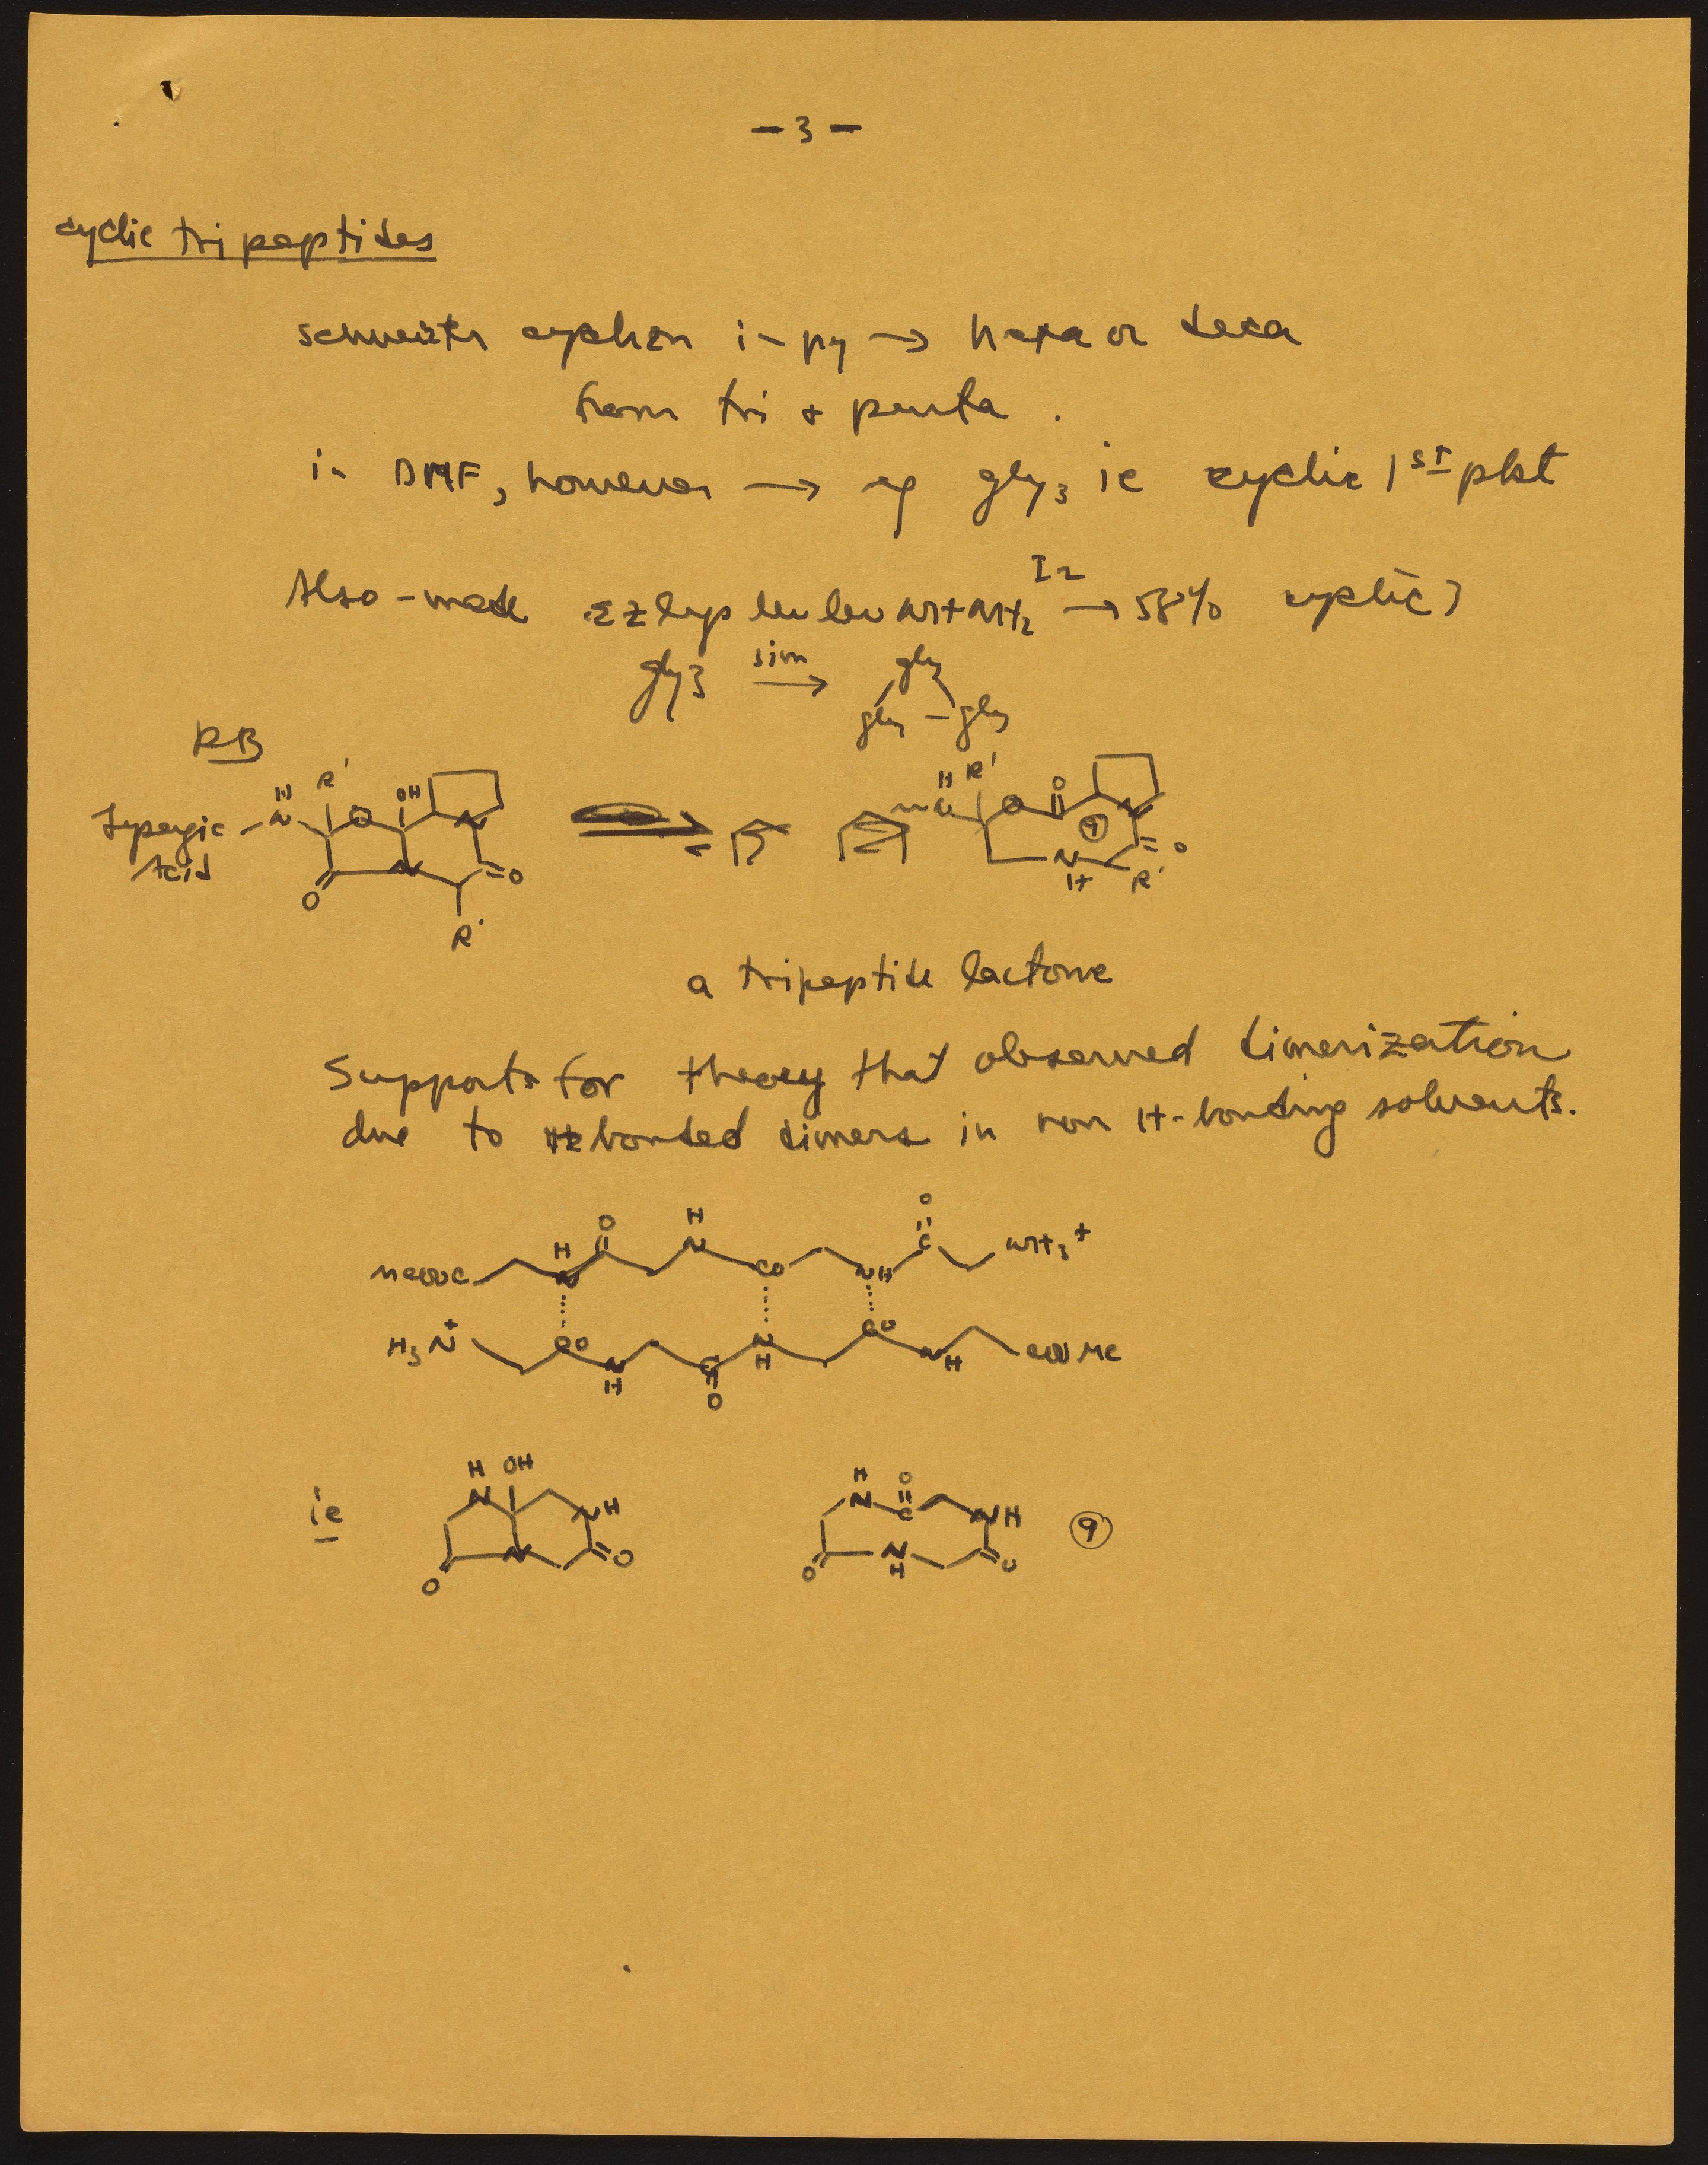 - 3 -
cyclic tripeptides
in py → hexa or deca
from tri + penta .
in DMF, however → eg gly3 ie cyclic 1st pkt
Also - made εZ lys leu leu NHNH2 I2 → 58% cyclic 3
gly3 sim → gly gly - gly
RB
Lysergic Acid - N H R' O OH N O N O R'
H N R' O O N 9 O N H R'
a tripeptide lactone
Supports for theory that observed dimerization
due to H bonded dimers in non H-bonding solvents.
MeOOC H N O H N CO NH O C NH3+
H3N+ CO N H C O N H CO N H COOMe
ie H N OH N H N O O
H N O C N H O N H O 9